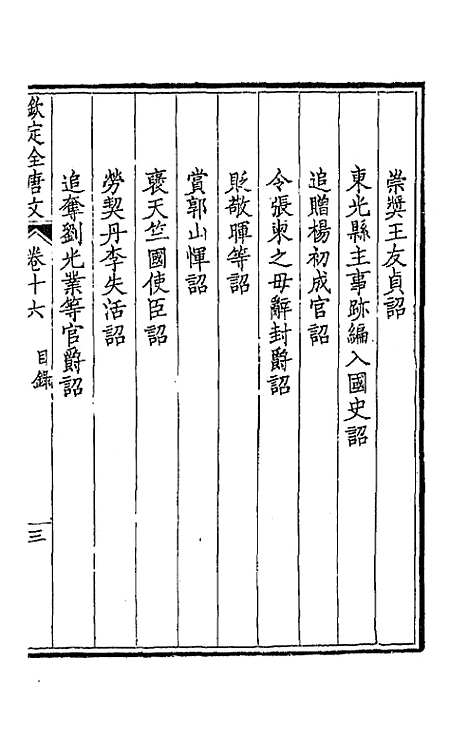 崇奬王友貞詔
東光縣主事跡編入國史詔
追贈楊初成官詔
令張柬之毋辭封爵詔
貶敬暉等詔
賞郭山惲詔
襃天竺國使臣詔
勞契丹李失活詔
追奪劉光業等官爵詔
欽定全唐文 卷十六 目錄 三